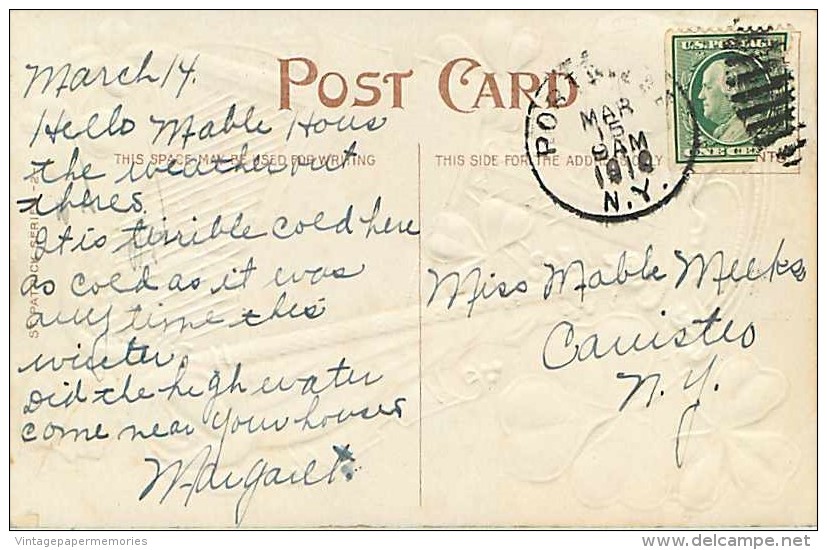 March 14.
POST CARD
Hello Mable Hows
THIS SPACE MAY BE USED FOR WRITING
the weather out
theres
It is terrible cold here
as cold as it was
any time this
winter.
Did the high water
come near your houses
Margaret.
ST. PATRICK SERIES
THIS SIDE FOR THE ADDRESS ONLY
U.S. POSTAGE
ONE CENT
MAR
15
9AM
N.Y.
Miss Mable Meeks
Canisteo
N.Y.
Vintagepapermemories
delcampe.net